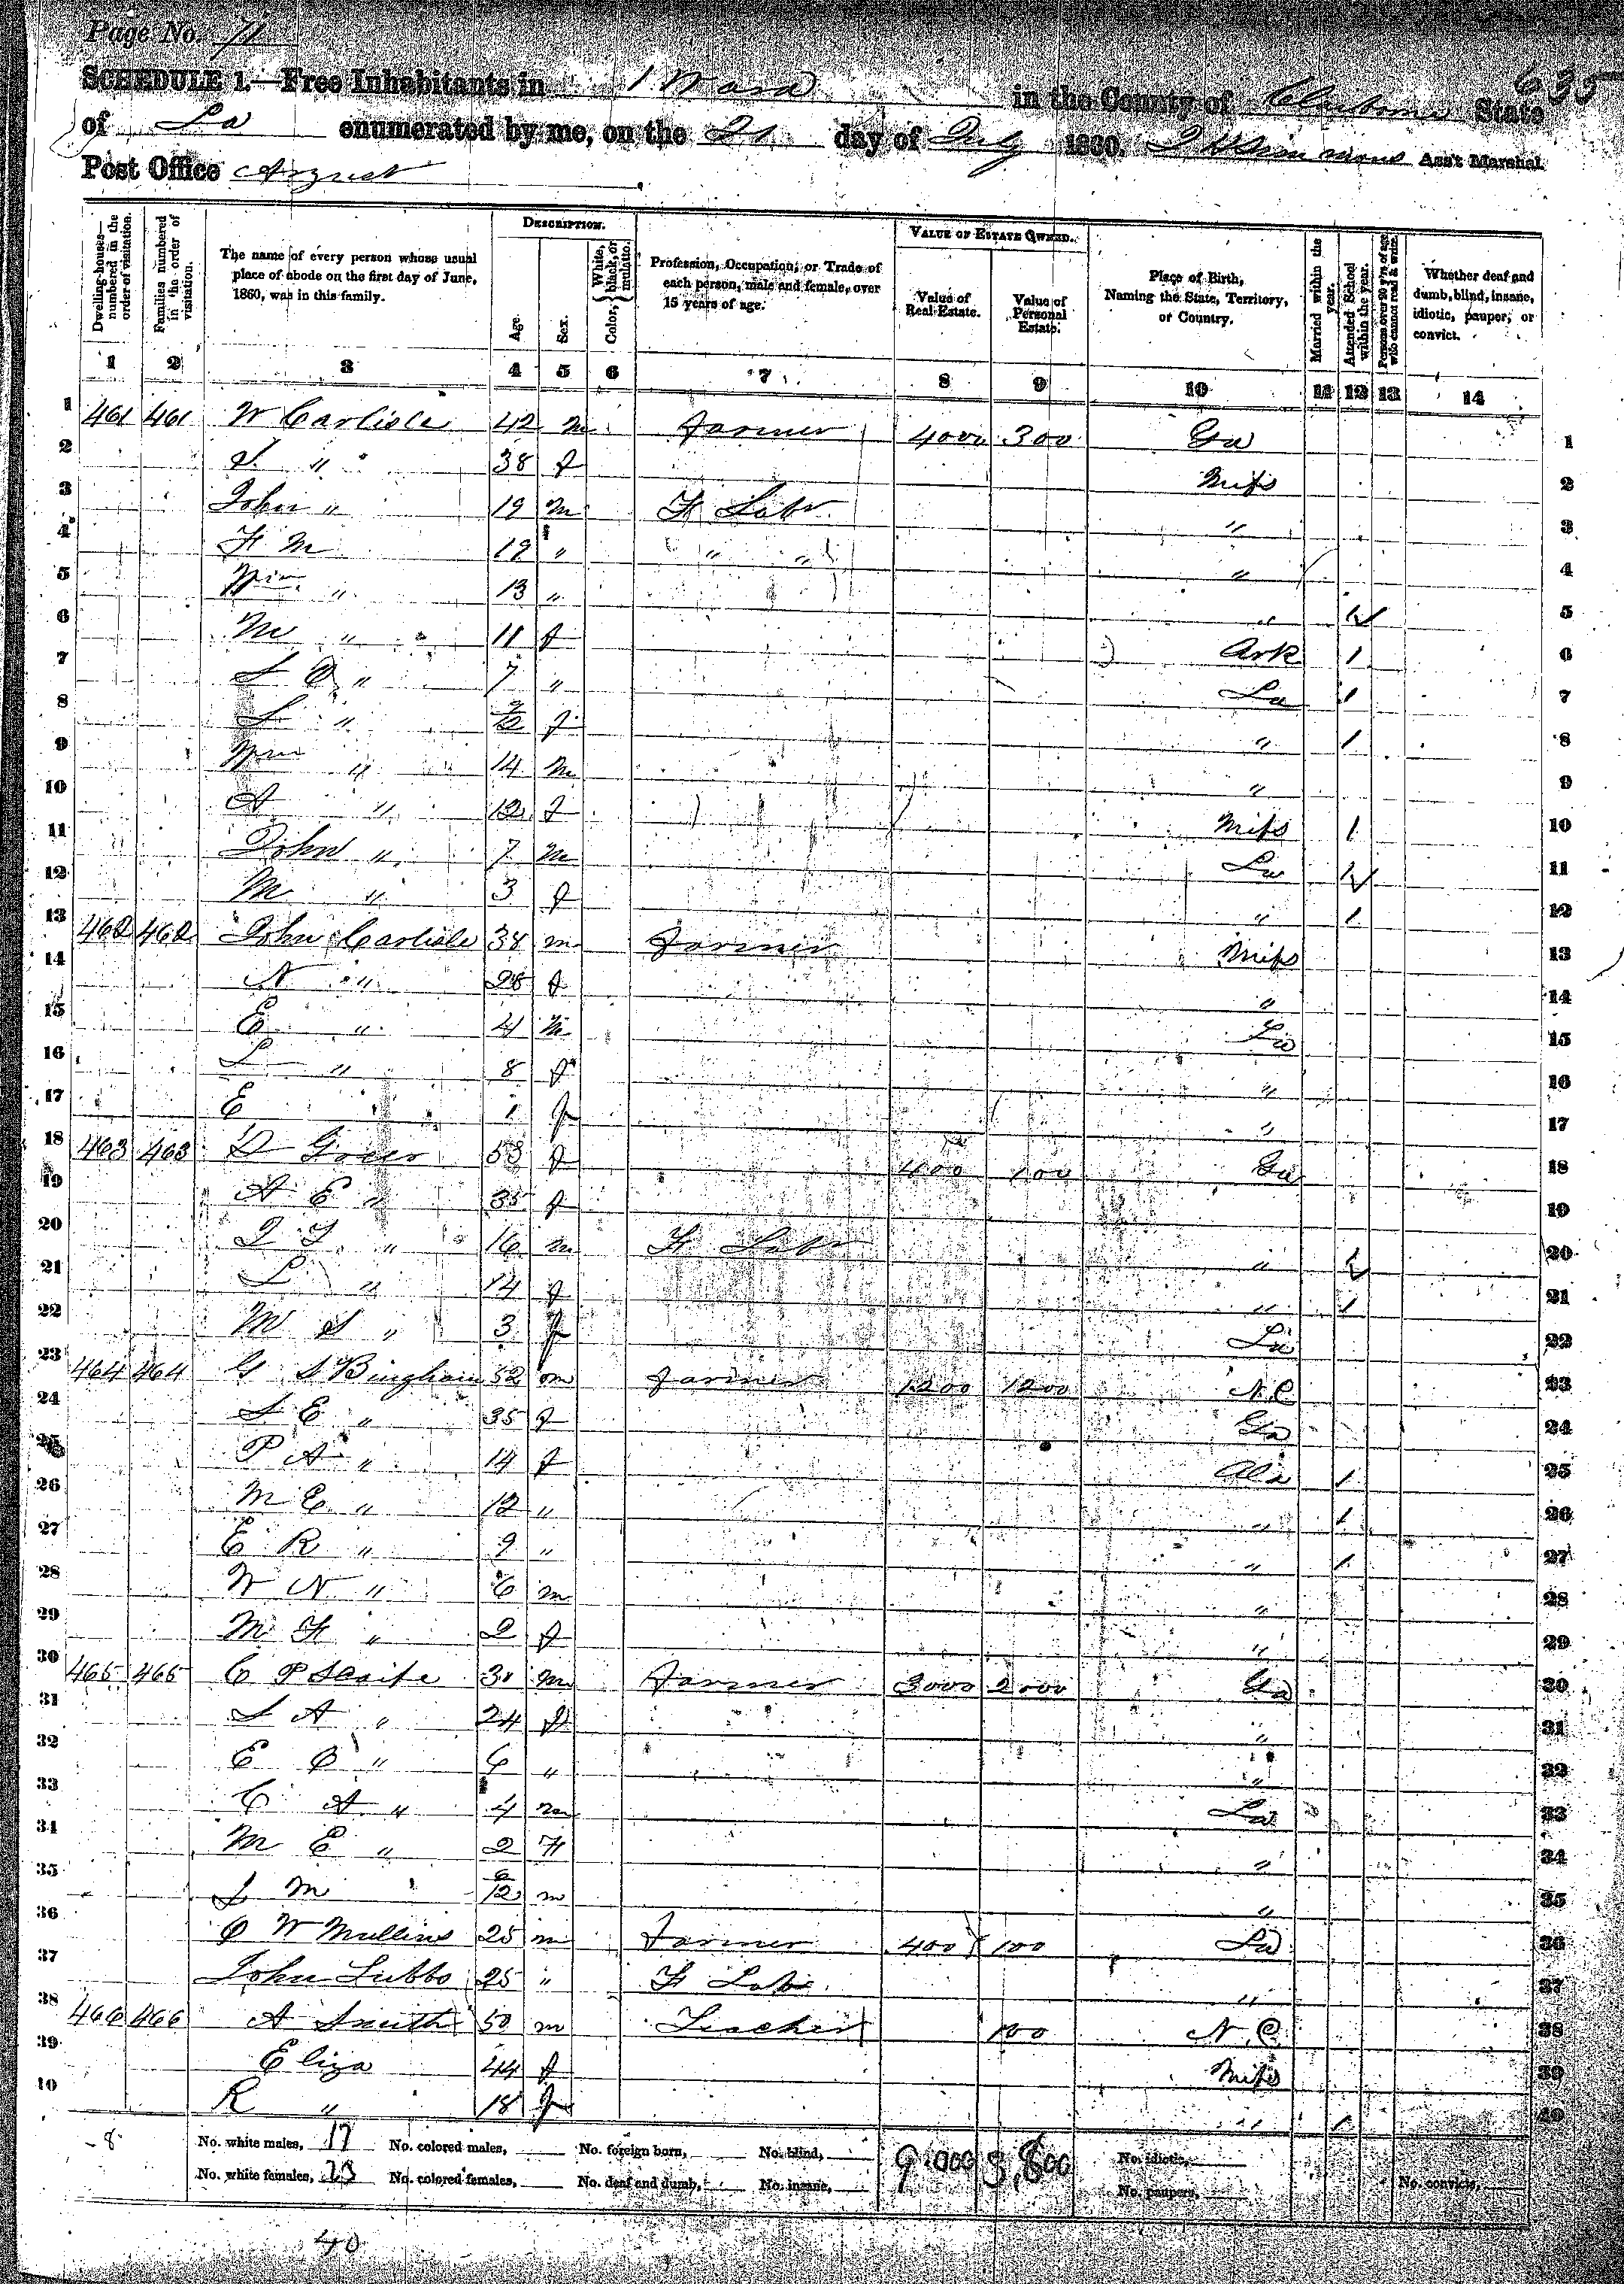 Page No. 71
635
SCHEDULE 1.—Free Inhabitants in 1 Ward in the County of Claiborne State
of La enumerated by me, on the 21 day of July 1860. Ass't Marshal.
Post Office
Dwelling-houses—numbered in the order of visitation.
Families numbered in the order of visitation.
The name of every person whose usual place of abode on the first day of June, 1860, was in this family.
DESCRIPTION.
Age.
Sex.
Color, { White, black, or mulatto.
Profession, Occupation, or Trade of each person, male and female, over 15 years of age.
VALUE OF ESTATE OWNED.
Value of Real Estate.
Value of Personal Estate.
Place of Birth, Naming the State, Territory, or Country.
Married within the year.
Attended School within the year.
Persons over 20 y'rs of age who cannot read & write.
Whether deaf and dumb, blind, insane, idiotic, pauper, or convict.
1 2 3 4 5 6 7 8 9 10 11 12 13 14
1 461 461 W Carlisle 42 m Farmer 4000 300 Ga 1
2 S. " 38 f Miss 2
3 John " 19 m F Labr " 3
4 F M 19 " " " " 4
5 Wm " 13 " " 1 5
6 M " 11 f Ark 1 6
7 " 7 " La 1 7
8 S " f " 1 8
9 Wm " 14 m " 9
10 A " 12 f Miss 1 10
11 John " 7 m La 1 11
12 M " 3 f " 1 12
13 462 462 John Carlisle 38 m Farmer Miss 13
14 N " 28 f " 14
15 E " 4 m La 15
16 L " 8 f " 16
17 E 1 f " 17
18 463 463 D Greer 53 f 400 100 Ga 18
19 A E " 35 f 19
20 " 16 m F Labr " 1 20
21 L " 14 f " 1 21
22 M S " 3 f La 22
23 464 464 G S Bingham 52 m Farmer 1200 1200 N.C 23
24 S E " 35 f Ga 24
25 P A " 14 f Ala 1 25
26 M E " 12 " " 1 26
27 E R " 9 " " 1 27
28 W N " 6 m " 28
29 M F " 2 f " 29
30 465 465 C P Scaife 31 m Farmer 3000 2000 Ga 30
31 S A " 24 f " 31
32 E C " 6 " " 32
33 C A " 4 m La 33
34 M E " 2 F " 34
35 S M 12 m " 35
36 W Mullins 25 m Farmer 400 100 La 36
37 John Lubbs 25 " F Labr " 37
38 466 466 A Smith 50 m Teacher 100 N.C. 38
39 Eliza 44 f Miss 39
40 R " 18 f " 1 40
No. white males, 17 No. colored males, No. foreign born, No. blind, 9.000 3,800 No. idiotic,
No. white females, 23 No. colored females, No. deaf and dumb, No. insane, No. paupers, No. convicts,
8
40